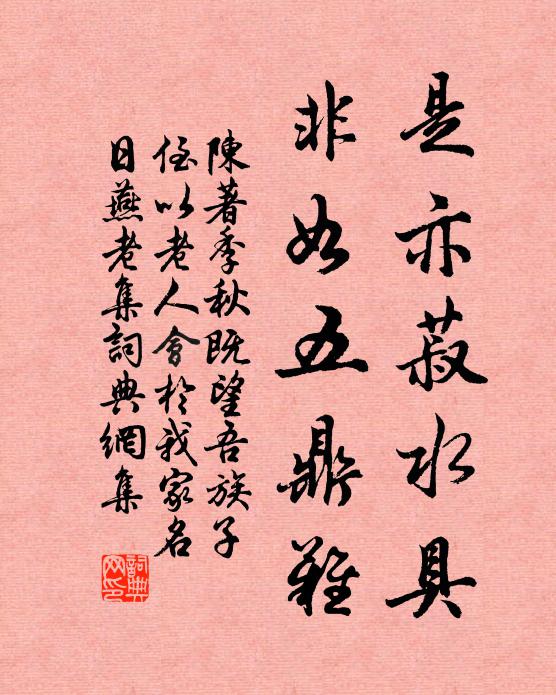 是亦菽水具
非如五鼎難
陳著季秋既望吾族子
侄以老人會於我家名
日燕老集詞典網集
詞典網印